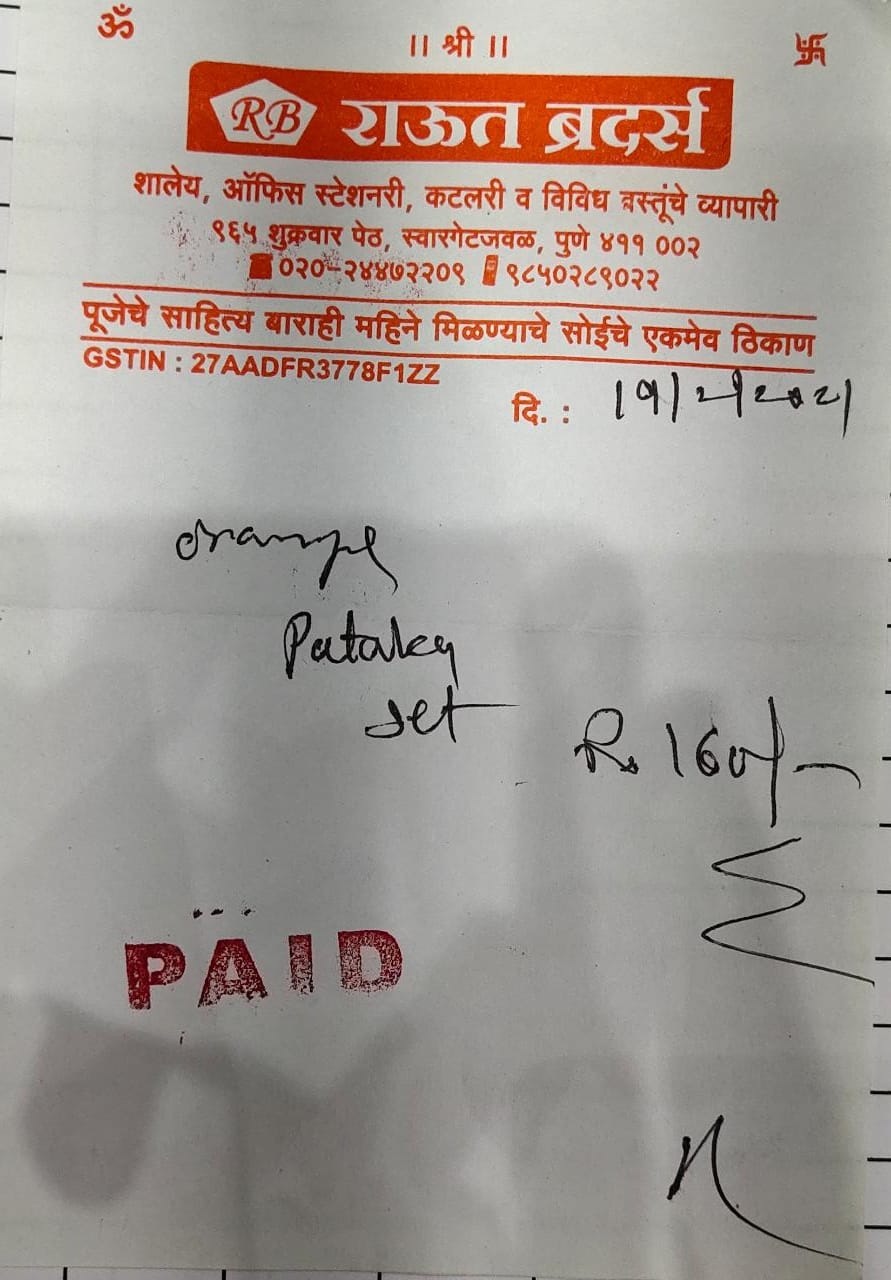 ॐ
॥ श्री ॥
卐
RB राऊत ब्रदर्स
शालेय, ऑफिस स्टेशनरी, कटलरी व विविध वस्तूंचे व्यापारी
९६५ शुक्रवार पेठ, स्वारगेटजवळ, पुणे ४११ ००२
०२०-२४४७२२०९ ९८५०२८९०२२
पूजेचे साहित्य बाराही महिने मिळण्याचे सोईचे एकमेव ठिकाण
GSTIN : 27AADFR3778F1ZZ
दि. : 19/2/2021
orange
Pataka
set
Rs 160/-
PAID